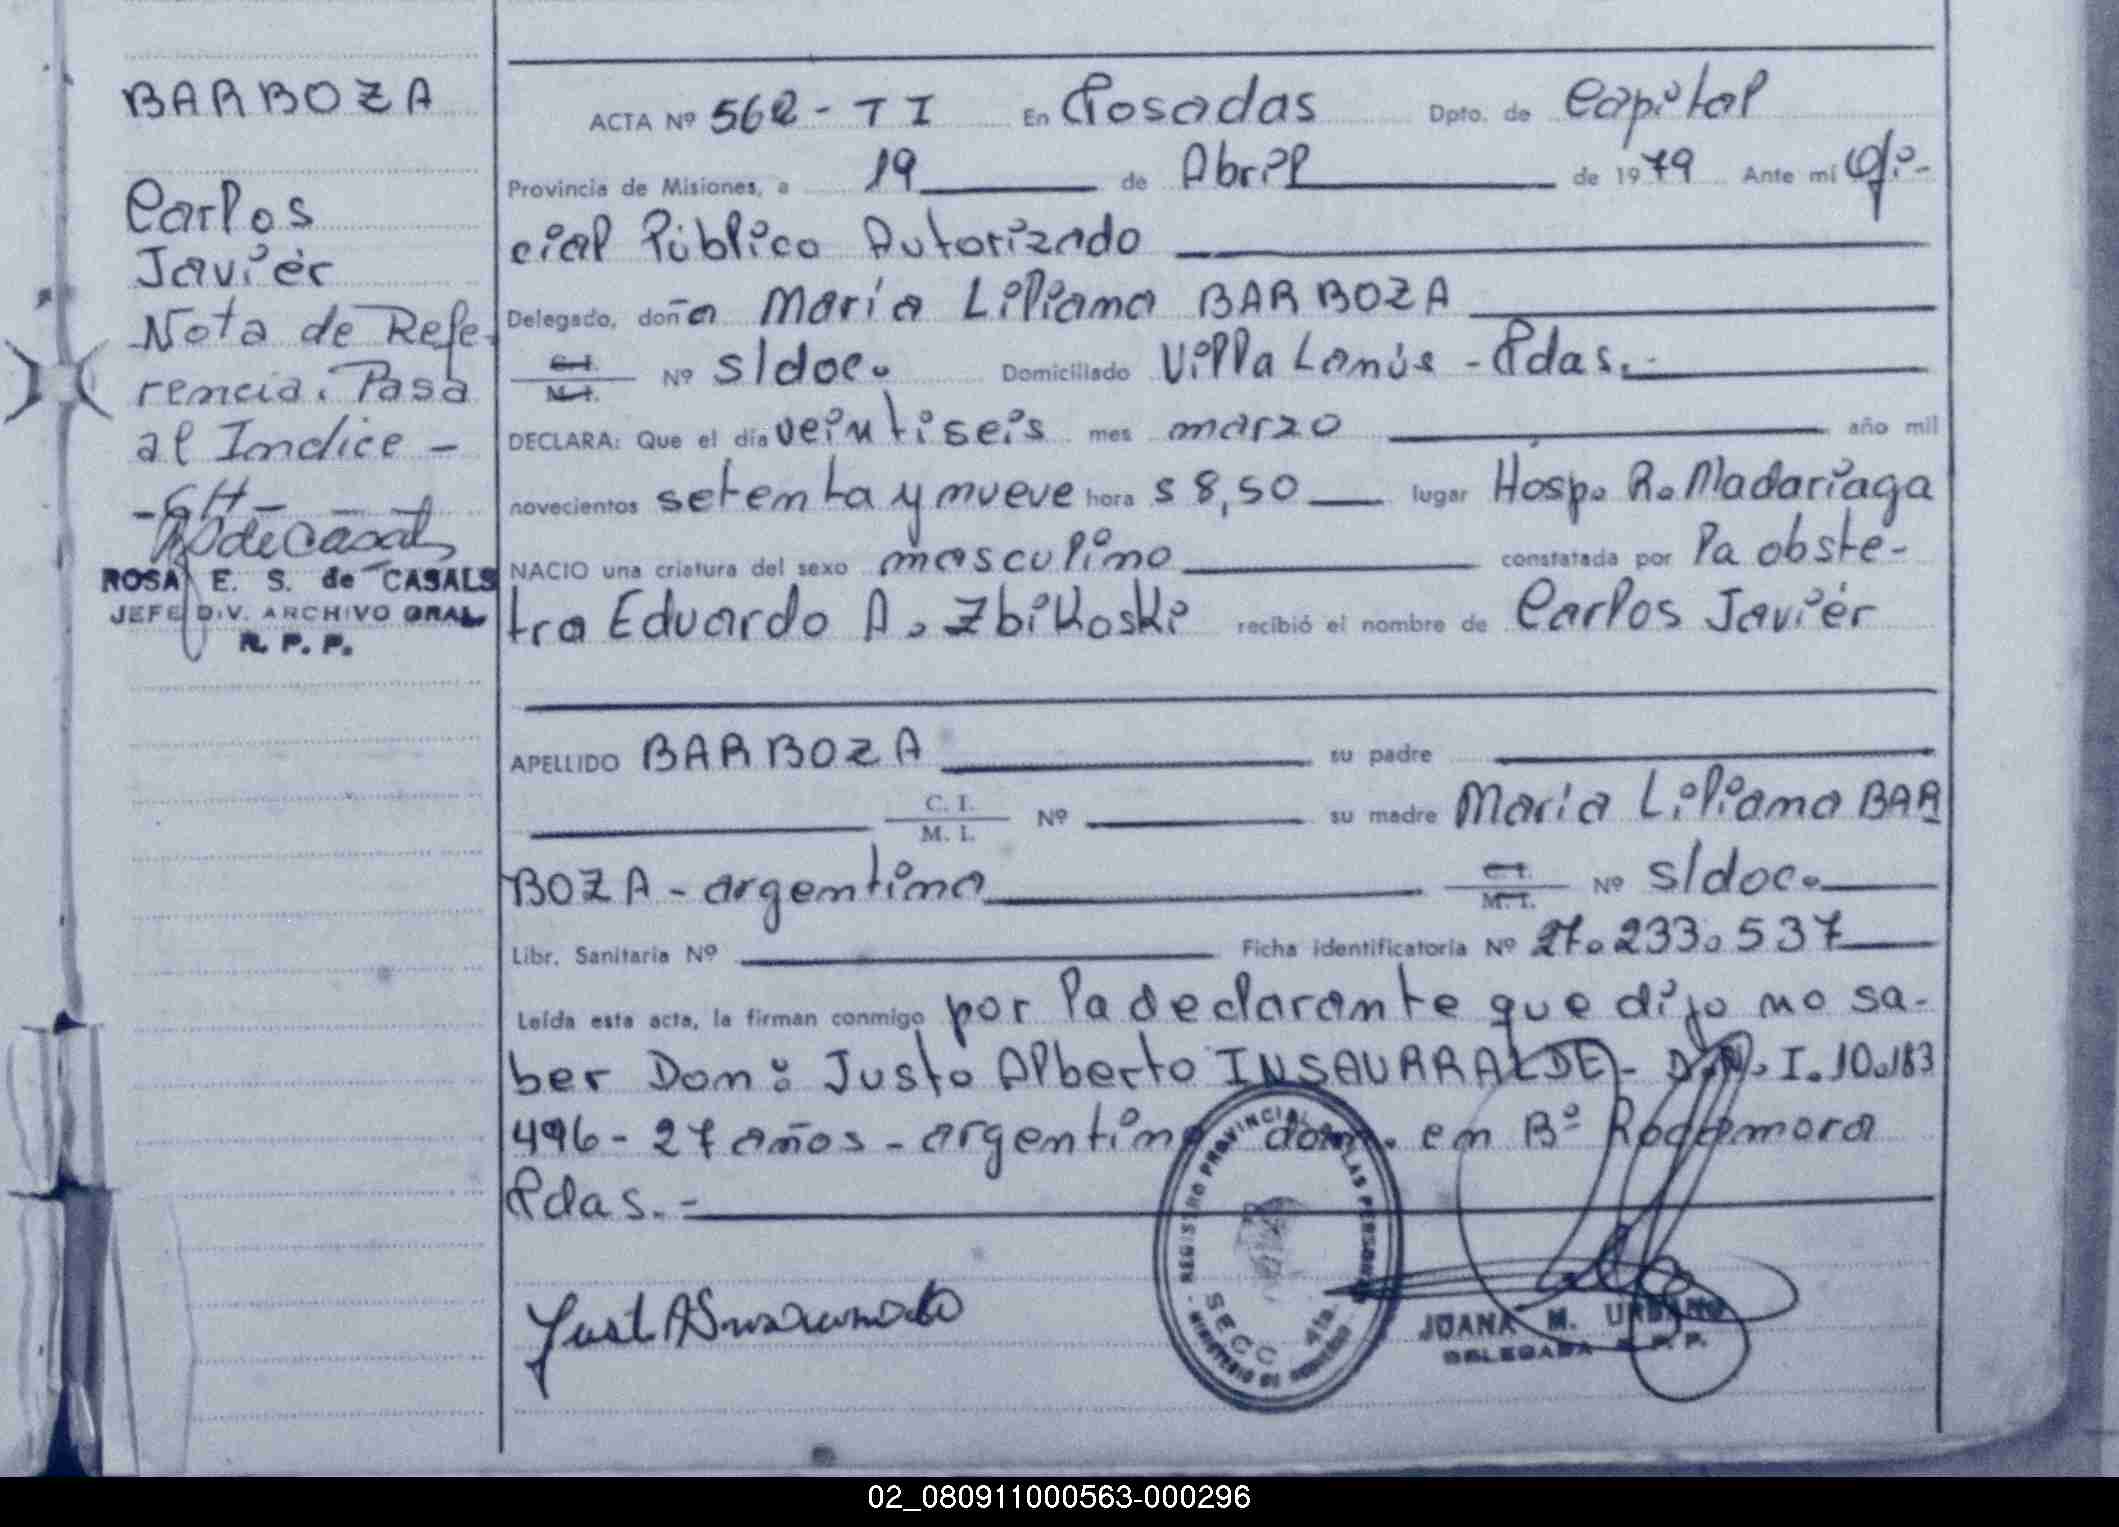 BARBOZA
Carlos
Javiér
Nota de Refe-
rencia. Pasa
al Indice -
- GH -
ROSA E. S. de CASALS
JEFE DIV. ARCHIVO GRAL
R. P. P.
ACTA Nº 562 - T I En Posadas Dpto. de Capital
Provincia de Misiones, a 19 de Abril de 1979 Ante mí Ofi-
cial Público Autorizado
Delegado, doña María Liliana BARBOZA
C.I. M.I. Nº s/doc. Domiciliado Villa Lanús - Pdas.-
DECLARA: Que el día veintiseis mes marzo año mil
novecientos setenta y nueve hora s 8,50 lugar Hosp. R. Madariaga
NACIO una criatura del sexo masculino constatada por la obste-
tra Eduardo A. Zbikoski recibió el nombre de Carlos Javiér
APELLIDO BARBOZA su padre
C. I. M. I. Nº su madre María Liliana BAR
BOZA - argentina C.I. M.I. Nº s/doc.
Libr. Sanitaria Nº Ficha identificatoria Nº 27.233.537
Leída esta acta, la firman conmigo por la declarante que dijo no sa-
ber Don: Justo Alberto INSAURRALDE - D.N.I. 10.183
496 - 27 años - argentino dom. en Bº Rocamora
Pdas. -
REGISTRO PROVINCIAL DE LAS PERSONAS
SECC. 4ta.
MINISTERIO DE GOBIERNO
JUANA M. URBANO
DELEGADA R. P. P.
02_080911000563-000296